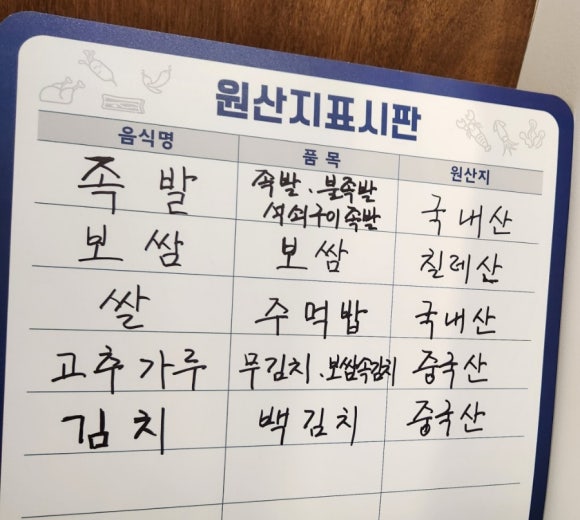 원산지표시판
음식명 품 목 원산지
족 발 족발 . 불족발 국내산
석쇠구이족발
보 쌈 보 쌈 칠레산
쌀 주 먹 밥 국내산
고추가루 무김치 . 보쌈속김치 중국산
김 치 백 김 치 중국산